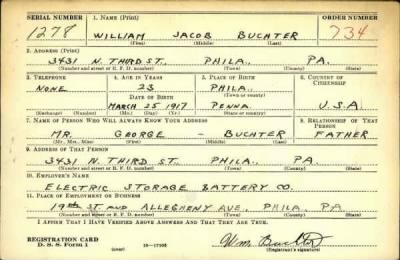 SERIAL NUMBER 1. NAME (Print) ORDER NUMBER
1278 WILLIAM JACOB BUCHTER 734
(First) (Middle) (Last)
2. ADDRESS (Print)
3431 N. THIRD ST., PHILA., PA.
(Number and street or R. F. D. number) (Town) (County) (State)
3. TELEPHONE 4. AGE IN YEARS 5. PLACE OF BIRTH 6. COUNTRY OF CITIZENSHIP
NONE 23 PHILA.,
DATE OF BIRTH (Town or county)
MARCH 25 1917 PENNA. U.S.A.
(Mo.) (Day) (Yr.) (State or country)
7. NAME OF PERSON WHO WILL ALWAYS KNOW YOUR ADDRESS 8. RELATIONSHIP OF THAT PERSON
MR. GEORGE - BUCHTER FATHER
(Mr., Mrs., Miss) (First) (Middle) (Last)
9. ADDRESS OF THAT PERSON
3431 N. THIRD ST., PHILA., PA.
(Number and street or R. F. D. number) (Town) (County) (State)
10. EMPLOYER'S NAME
ELECTRIC STORAGE BATTERY CO.
11. PLACE OF EMPLOYMENT OR BUSINESS
19TH ST AND ALLEGHENY AVE., PHILA. PA
(Number and street or R. F. D. number) (Town) (County) (State)
I AFFIRM THAT I HAVE VERIFIED ABOVE ANSWERS AND THAT THEY ARE TRUE.
REGISTRATION CARD
D. S. S. Form 1 (over) 16-17105 Wm. Buchter
(Registrant's signature)